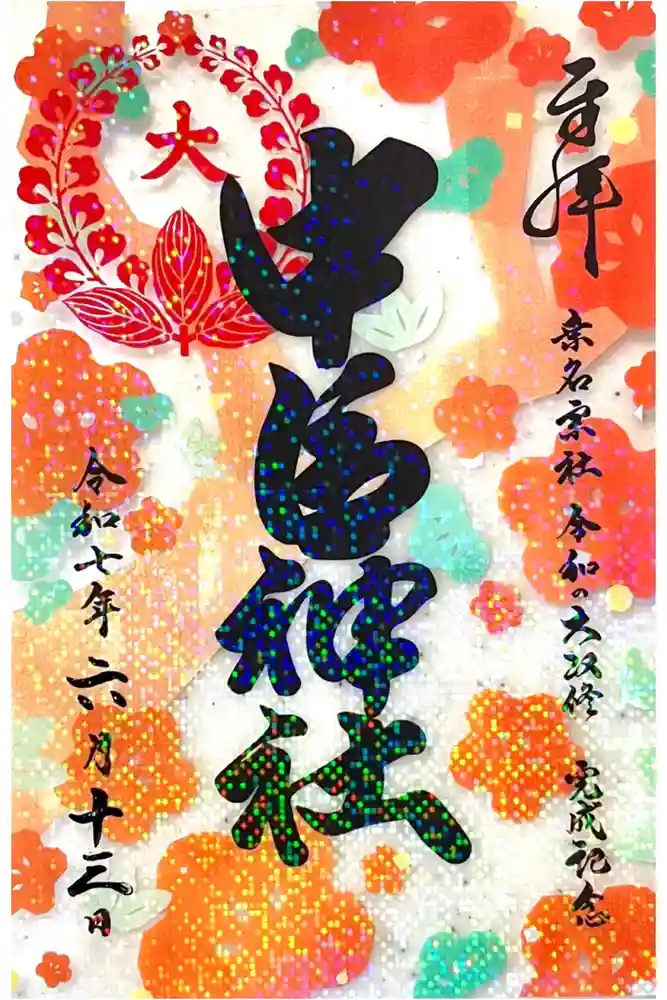 奉拝
桑名宗社 令和の大改修 完成記念
大
中臣神社
令和七年六月十三日